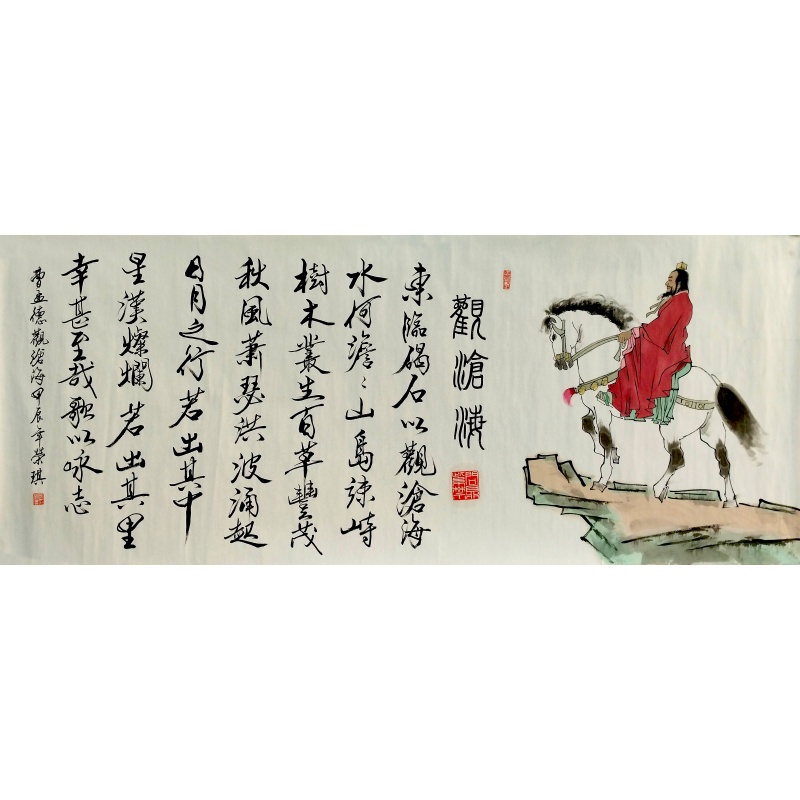 觀滄海
東臨碣石以觀滄海
水何澹〻山島竦峙
樹木叢生百草豐茂
秋風蕭瑟洪波涌起
日月之行若出其中
星漢燦爛若出其里
幸甚至哉歌以咏志
曹孟德觀滄海甲辰榮琪